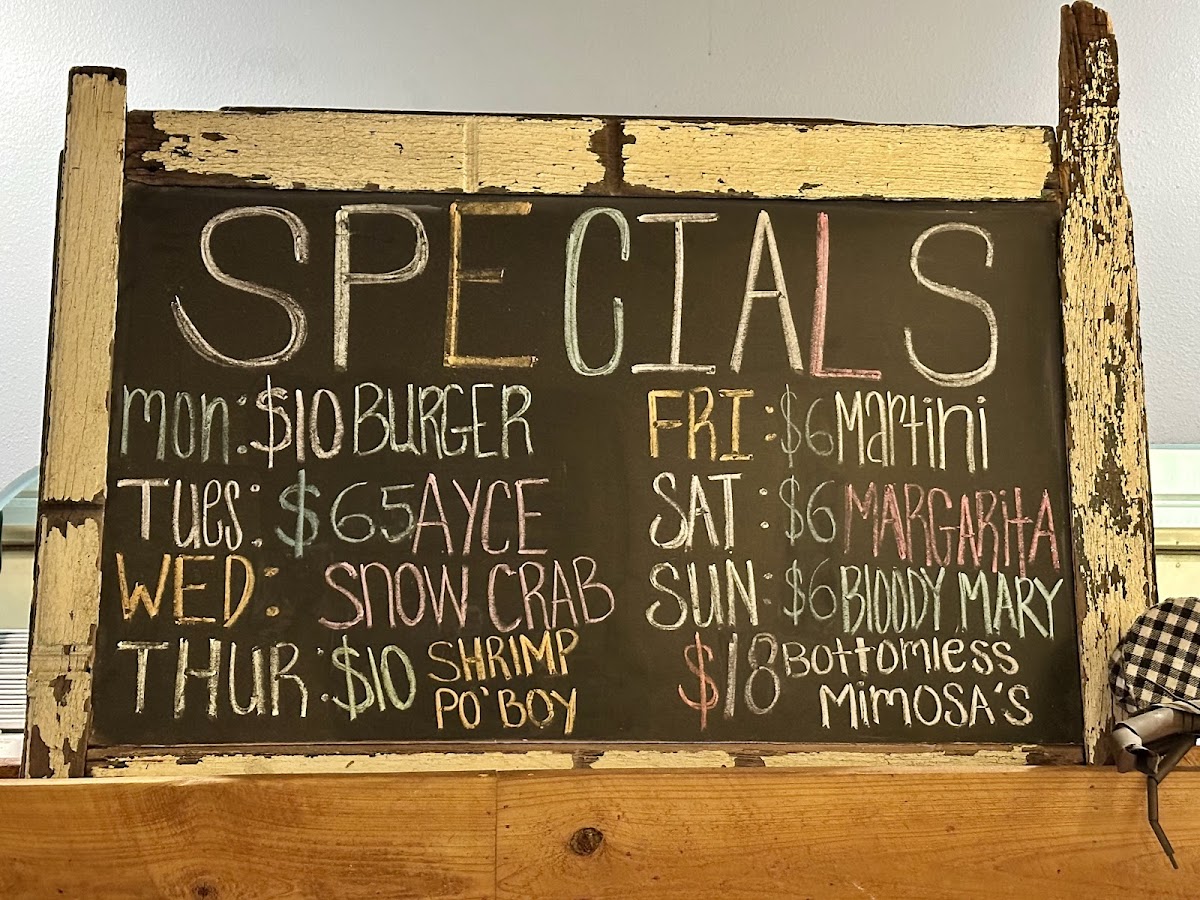 SPECIALS
Mon: $10 BURGER
Tues: $65 AYCE
WED: SNOW CRAB
THUR: $10 SHRIMP
PO'BOY
FRI: $6 Martini
SAT: $6 MARGARITA
SUN: $6 BLOODY MARY
$18 BOttOmless
MIMOSA'S